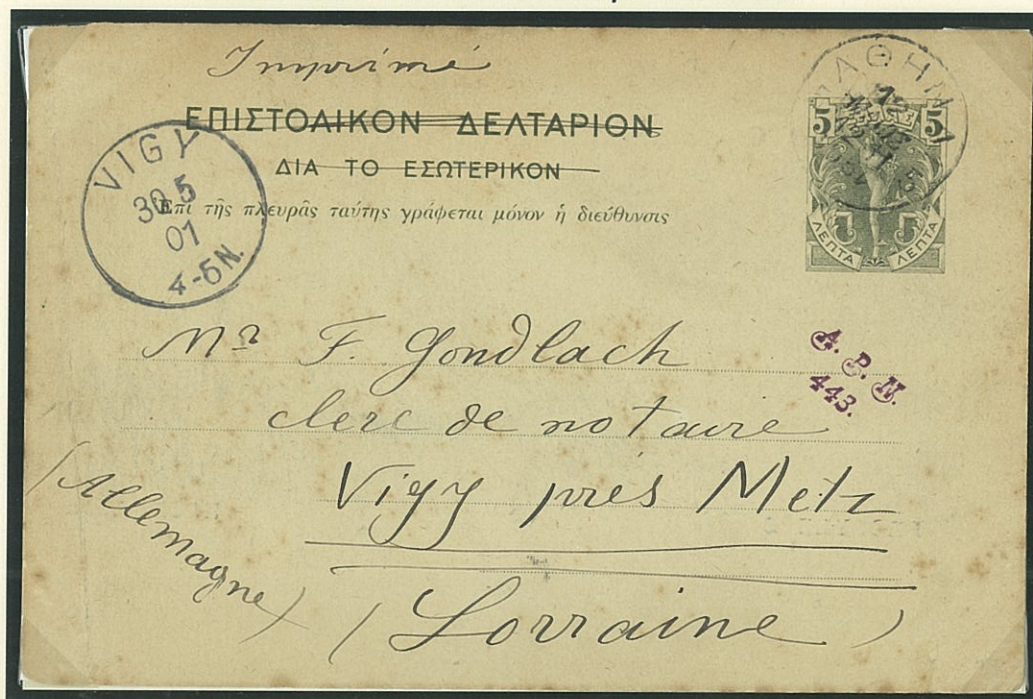 Imprimé
ΕΠΙΣΤΟΛΙΚΟΝ ΔΕΛΤΑΡΙΟΝ
ΔΙΑ ΤΟ ΕΣΩΤΕΡΙΚΟΝ
Ἐπὶ τῆς πλευρᾶς ταύτης γράφεται μόνον ἡ διεύθυνσις
VIGY
30 5
01
4-5N.
ΑΘΗΝ
5 5
ΛΕΠΤΑ ΛΕΠΤΑ
A. B. N.
443.
Mr F. Gondlach
clerc de notaire
Vigy près Metz
(Allemagne)
(Lorraine)